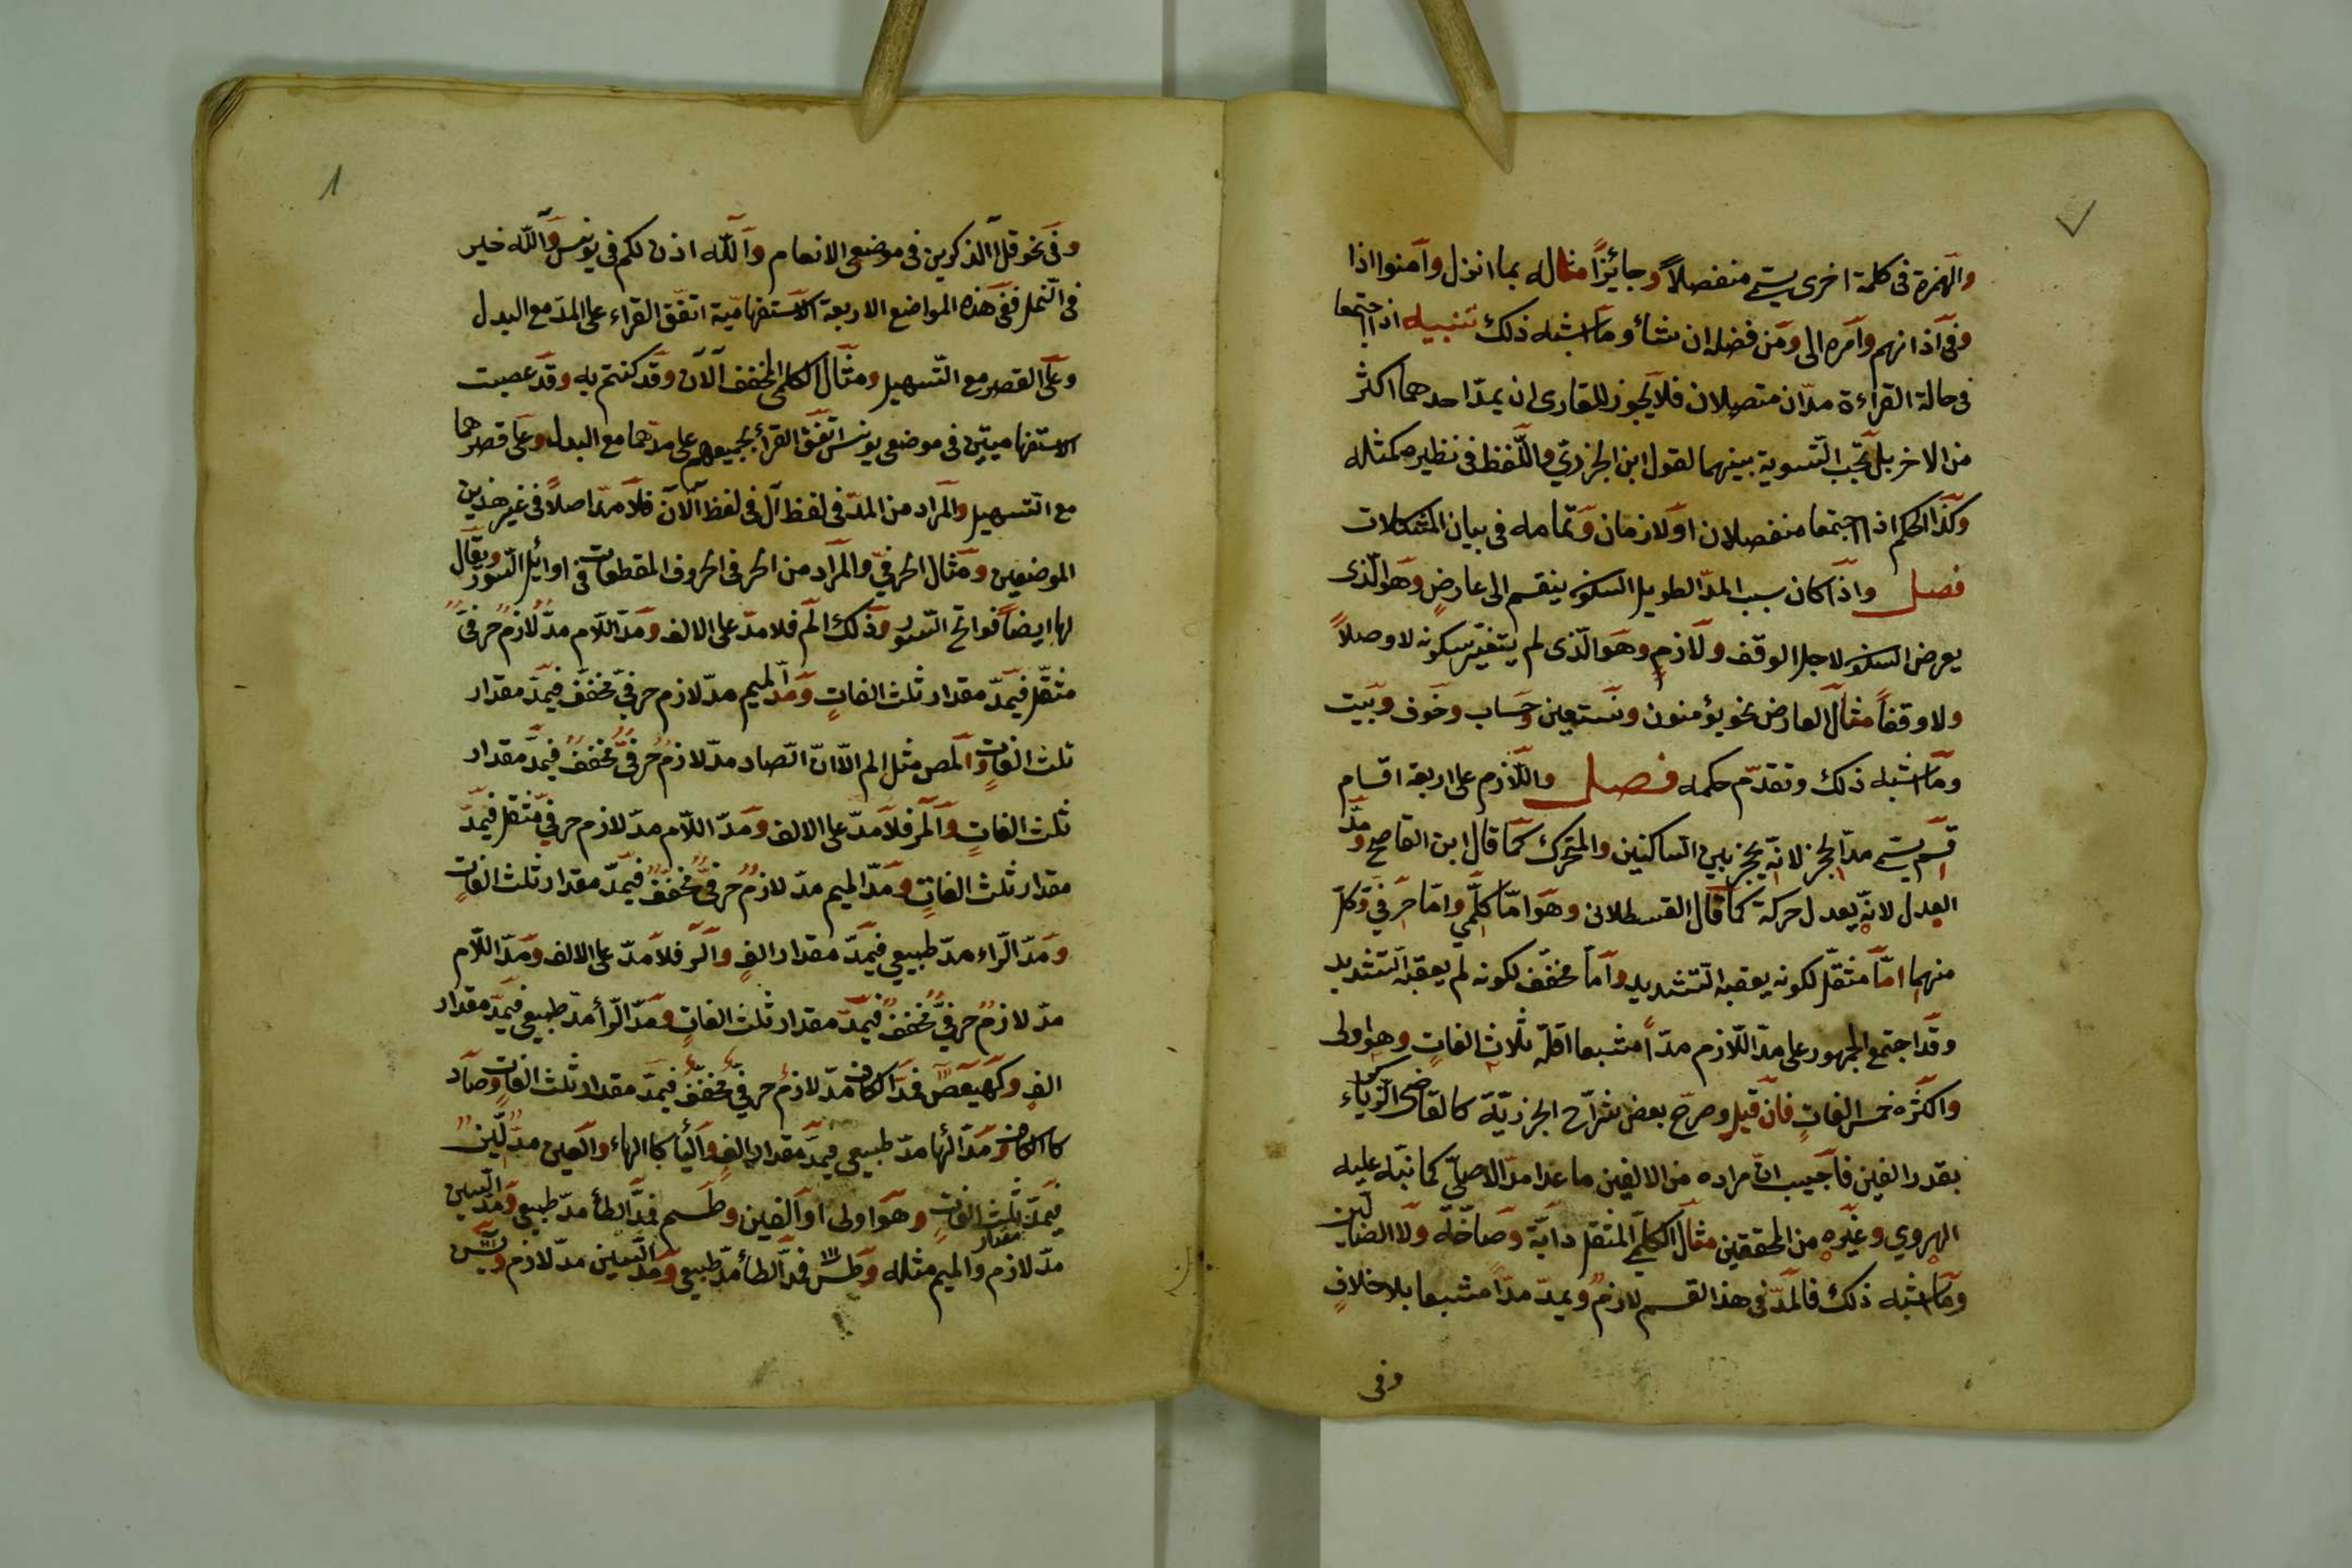 ٧
والهمزة فى كلمة اخرى يسمّى منفصلاً وجائزاً مثاله بما انزل وآمنوا اذا
وفى آذانهم وامره الى ومن فضله ان شاء وما اشبه ذلك تنبيه اذا اجتمعا
فى حالة القراءة مدّان متصلان فلا يجوز للقارى ان يمدّ احدهما اكثر
من الاخر بل تجب التسوية بينهما لقول ابن الجزرىّ واللّفظ فى نظيره كمثله
وكذا الحكم اذا اجتمعا منفصلان او لازمان وتمامه فى بيان المشكلات
فصل واذا كان سبب المدّ الطويل السكون ينقسم الى عارضٍ وهو الّذى
يعرض السكون لاجل الوقف ولازمٍ وهو الّذى لم يتغيّر سكونه لا وصلاً
ولا وقفاً مثال العارض نحو يؤمنون ونستعين وحساب وخوف وبيت
وما اشبه ذلك وتقدّم حكمه فصل واللّازم على اربعة اقسام
قسم يسمّى مدّ الحجز لانّه يحجز بين الساكنين والمتحرك كما قال ابن القاصح ومدّ
العدل لانّه يعدل حركة كما قال القسطلانى وهو امّا كلمّي وامّا حرفيّ وكلّ
منهما امّا مثقّل لكونه يعقبه التشديد وامّا مخفّف لكونه لم يعقبه التشديد
وقد اجتمع الجمهور على مدّ اللّازم مدّاً مشبعا اقلّه ثلاث الفاتٍ وهو اولى
واكثره خمس الفاتٍ فان قيل وصرّح بعض شرّاح الجزريّة كالقاضى زكريّاء
بقدر الفين فاجيب انّ مراده من الالفين ما عدا مدّ الاصلىّ كما نبّه عليه
الهروي وغيره من المحققين مثال الكلمي المثقل دابّة وصاخّة ولا الضالّين
وما اشبه ذلك فالمدّ فى هذا القسم لازمٌ ويمدّ مدّاً مشبعا بلا خلافٍ
وفى
٨
وفى نحو قل آلذكرين فى موضعى الانعام وآلله اذن لكم فى يونس وآلله خير
فى النمل ففى هذه المواضع الاربعة الاستفهاميّة اتفّق القراء على المدّ مع البدل
وعلى القصر مع التّسهيل ومثال الكلمى المخفف آلآن وقد كنتم به وقد عصيت
الاستفهاميتين فى موضعى يونس اتفق القراء بجميعهم على مدّهما مع البدل وعلى قصرهما
مع التسهيل والمراد من المدّ فى لفظ آل فى لفظ آلآن فلا مدّ اصلاً فى غير هذين
الموضعين ومثال الحرفيّ والمراد من الحرفى الحروف المقطعات فى اوائل السّور ويقال
لها ايضاً فواتح السّور وذلك الم فلا مدّ على الالف ومدّ اللّام مدّ لازمٌ حرفىٌّ
مثقّل فيمدّ مقدار ثلث الفاتٍ ومدّ الميم مدّ لازم حرفيّ مخفّف فيمدّ مقدار
ثلث الفاتٍ والمص مثل الم الّا انّ الصّاد مدّ لازمٌ حرفىٌّ مخفّفٌ فيمدّ مقدار
ثلث الفاتٍ والمر فلا مدّ على الالف ومدّ اللّام مدّ لازم حرفيّ مثقل فيمدّ
مقدار ثلث الفاتٍ ومدّ الميم مدّ لازمٌ حرفىٌّ مخفّفٌ فيمدّ مقدار ثلث الفاتٍ
ومدّ الرّاء مدّ طبيعي فيمدّ مقدار الفٍ والر فلا مدّ على الالف ومدّ اللّام
مدّ لازمٌ حرفيٌّ مخفّفٌ فيمدّ مقدار ثلث الفاتٍ ومدّ الرّأ مدّ طبيعي فيمدّ مقدار
الف وكهيعص فمدّ الكاف مدّ لازمٌ حرفيّ مخفّفٌ فيمدّ مقدار ثلث الفاتٍ وصاد
كالكاف ومدّ الها مدّ طبيعي فيمدّ مقدار الفٍ واليأ كالهاء والعين مدّ لّينٌ
فيمدّ مقدار ثلث الفاتٍ وهو اولى او الفين وطسم فمدّ الطأ مدّ طبيعي ومدّ السين
مدّ لازم والميم مثله وطس فمدّ الطأ مدّ طبيعي ومدّ السين مدّ لازم ويس